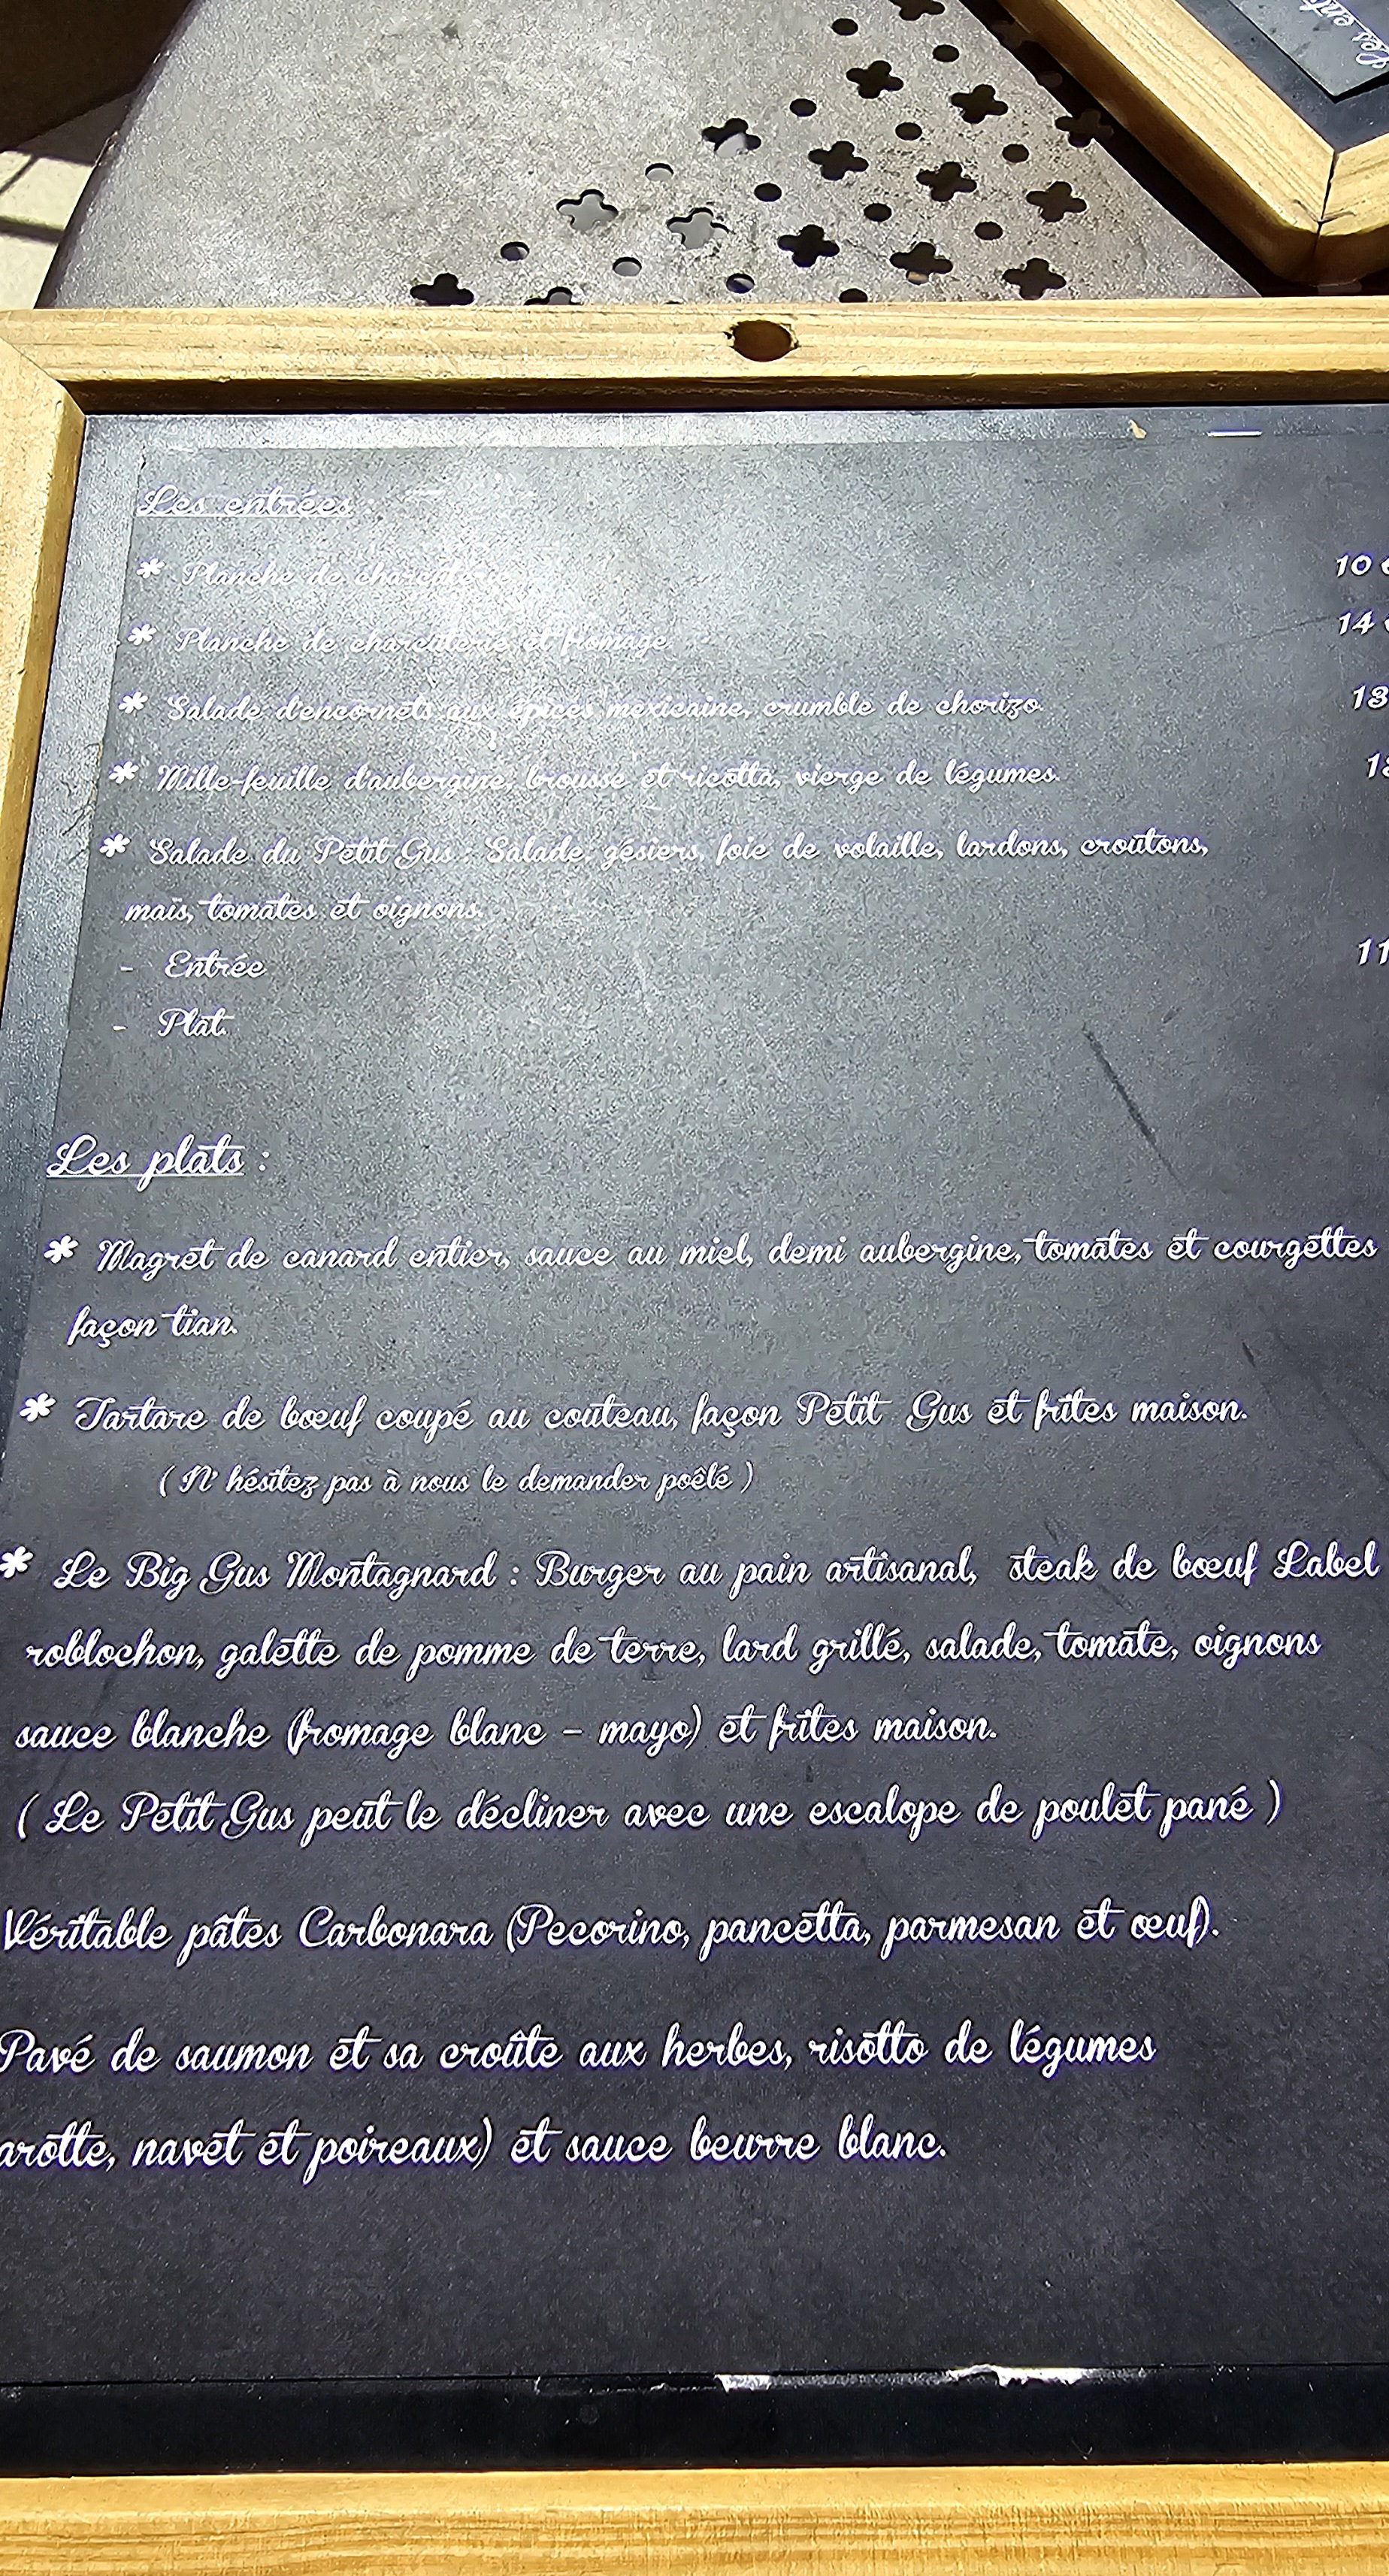 Les ent
Les entrées :
* Planche de charcuterie 10 €
* Planche de charcuterie et fromage 14
* Salade d'encornets aux épices mexicaine, crumble de chorizo. 13
* Mille-feuille d'aubergine, brousse et ricotta, vierge de légumes.
* Salade du Petit Gus : Salade, gésiers, foie de volaille, lardons, croutons,
maïs, tomates et oignons.
- Entrée 11
- Plat.
Les plats :
* Magret de canard entier, sauce au miel, demi aubergine, tomates et courgettes
façon tian.
* Tartare de bœuf coupé au couteau, façon Petit Gus et frites maison.
( N' hésitez pas à nous le demander poêlé )
* Le Big Gus Montagnard : Burger au pain artisanal, steak de bœuf Label
roblochon, galette de pomme de terre, lard grillé, salade, tomate, oignons
sauce blanche (fromage blanc – mayo) et frites maison.
( Le Petit Gus peut le décliner avec une escalope de poulet pané )
Véritable pâtes Carbonara (Pecorino, pancetta, parmesan et œuf).
Pavé de saumon et sa croûte aux herbes, risotto de légumes
arotte, navet et poireaux) et sauce beurre blanc.